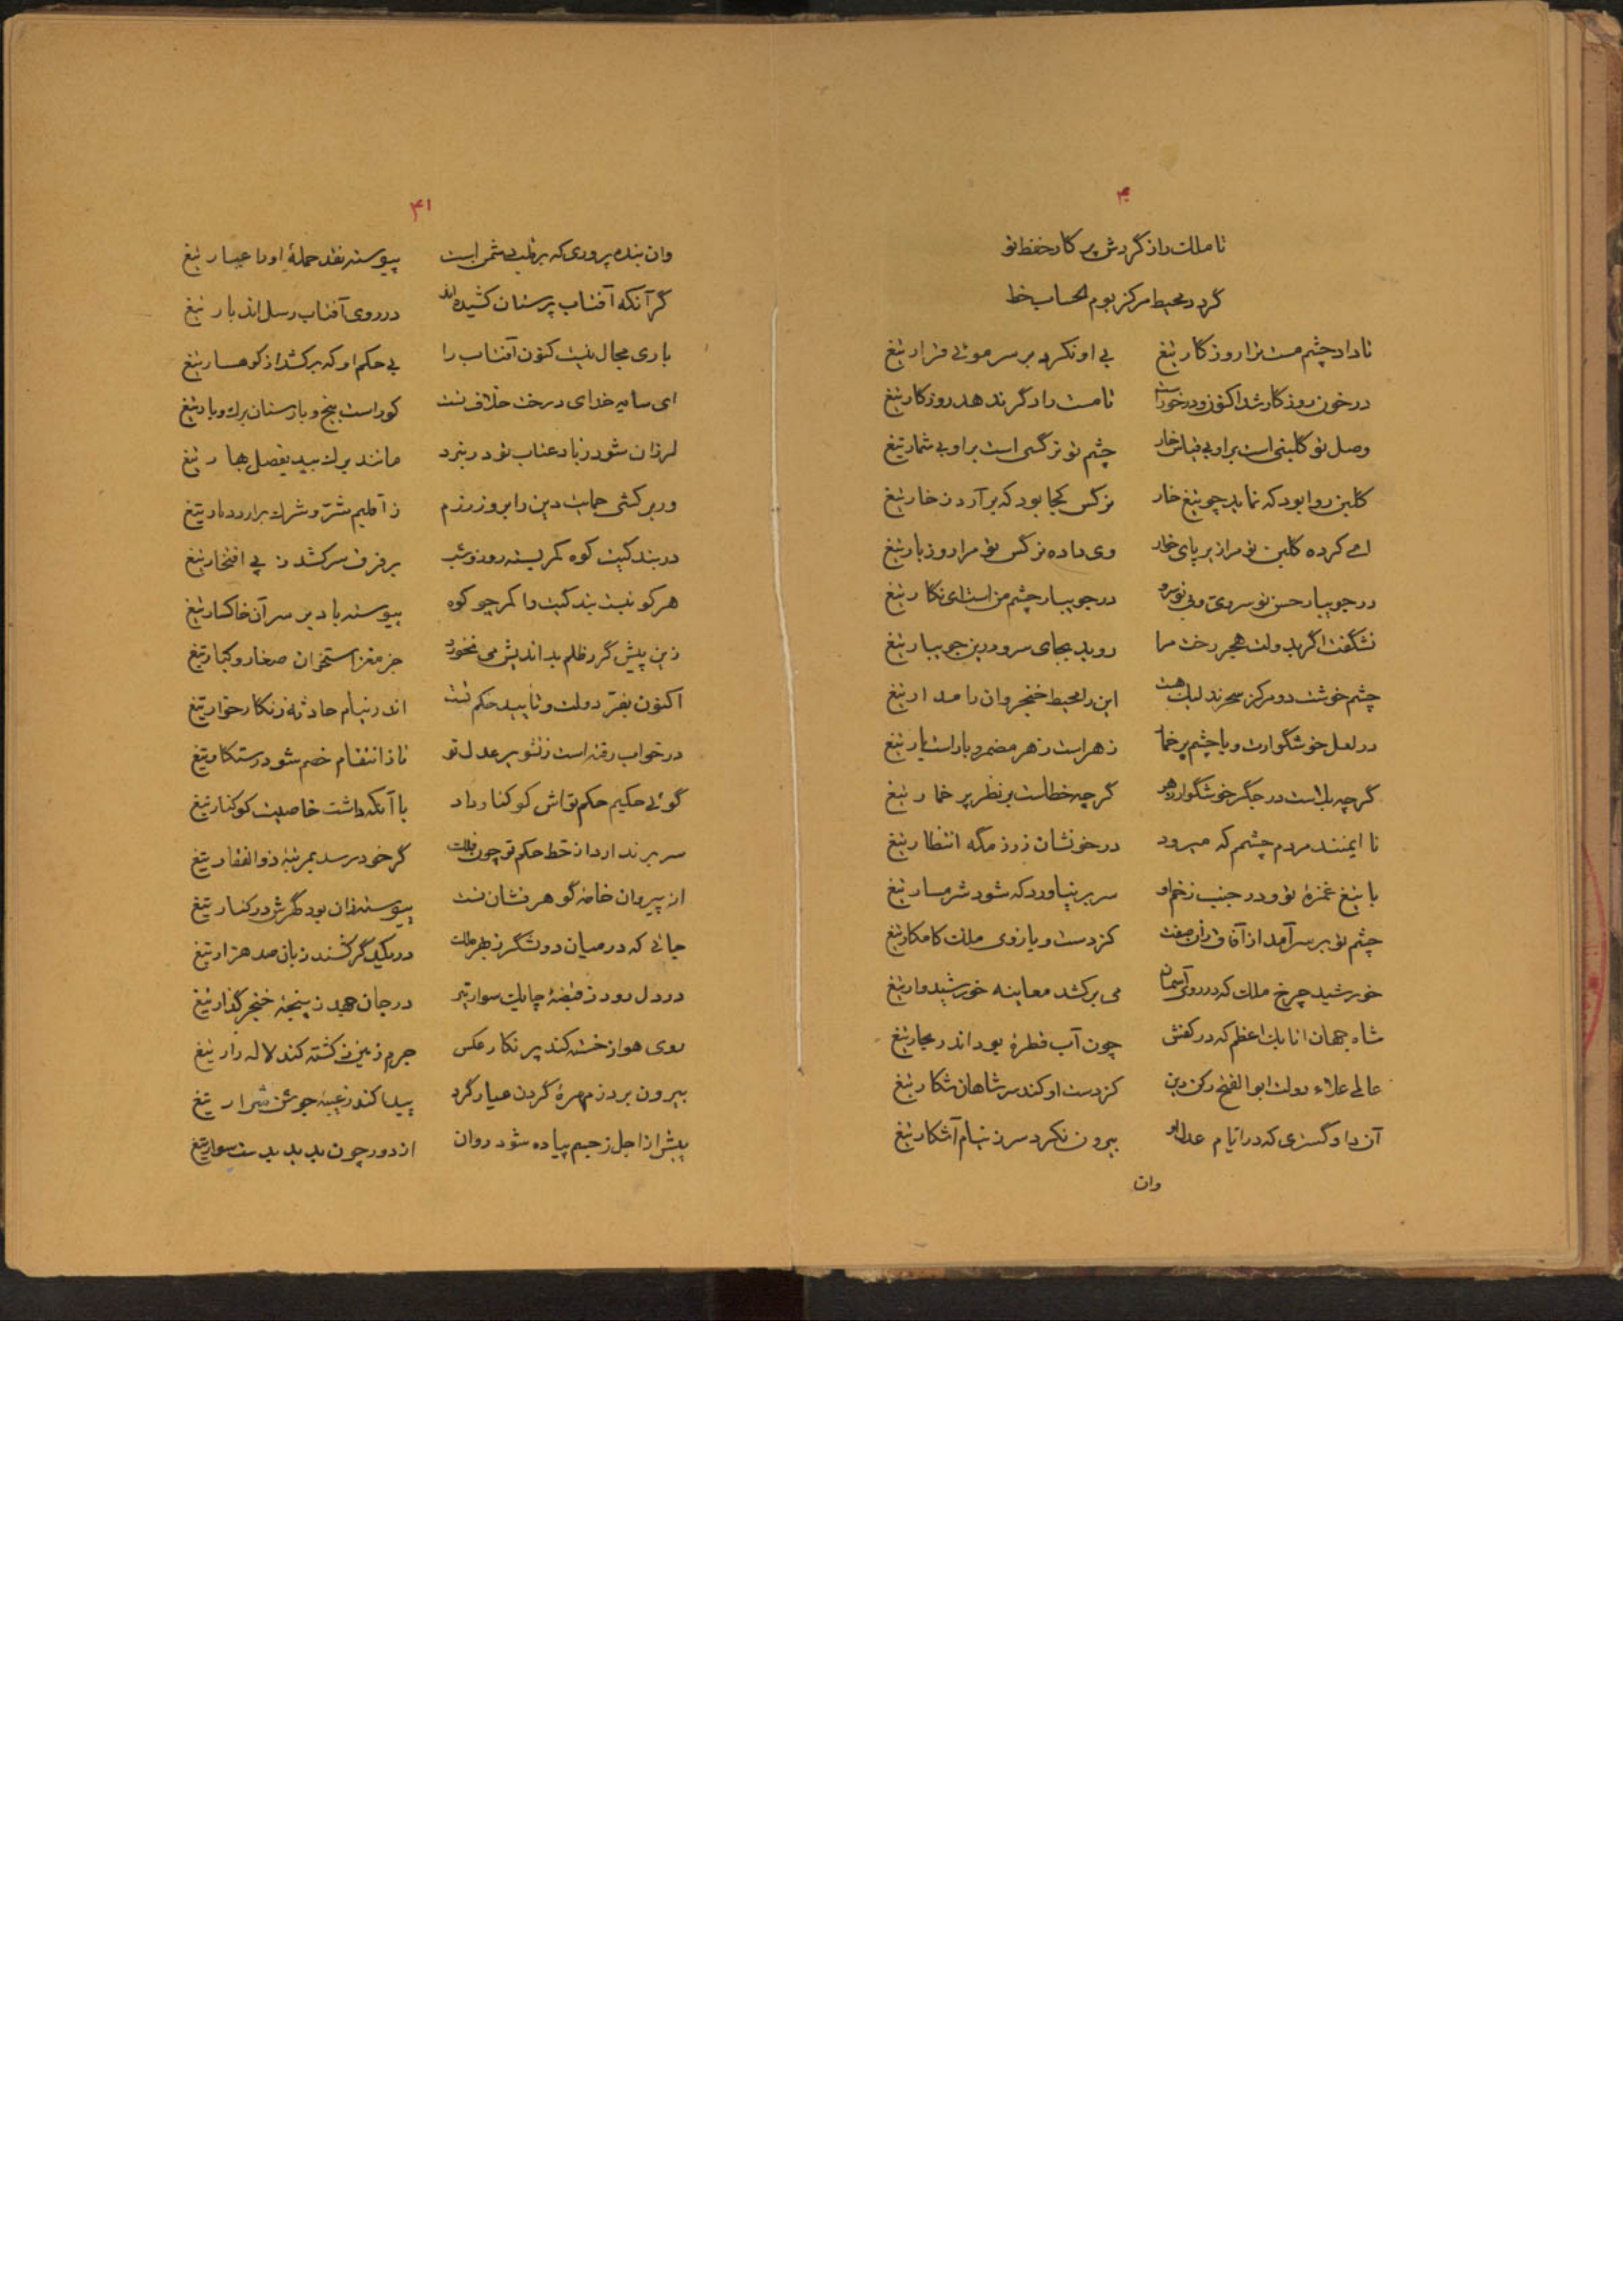 ۴۰
تا ملک را ز گردش پرکار حفظ تو
گردد محیط مرکز بوم الحساب خط
تا داد چشم مست ترا روزگار تیغ بی او نکرد بر سر موئی قرار تیغ
در خون روزگار شد اکنون و درخور است تا مست را دگر ندهد روزگار تیغ
وصل تو گلبنی است بر او بی قیاس خار چشم تو نرگسی است بر او بی شمار تیغ
گلبن روا بود که نماید چو تیغ خار نرگس کجا بود که برآرد ز خار تیغ
ای کرده گلبن تو مرا زیر پای خار وی داده نرگس تو مرا روز بار تیغ
در جویبار حسن تو سروی و بی تو سرو در جویبار چشم من است ای نگار تیغ
نشگفت اگر بدولت هجر رخت مرا روید بجای سرو درین جویبار تیغ
چشم خوشت دو مرکز سحرند لیک هست این را محیط خنجر و آن را مدار تیغ
در لعل خوشگوارت و با چشم پر خمار زهر است زهر مضمر و یار است یار تیغ
گرچه بد است در جگر خوشگوار زهر گرچه خطاست بر نظر پر خمار تیغ
نا ایمنند مردم چشمم که میرود در خونشان ز رزمگه انتظار تیغ
با تیغ غمزهٔ تو و در جنب زخم او سر بر نیاورد که شود شرمسار تیغ
چشم تو بر سر آمد از آفاق زان صفت کز دست و بازوی ملک کامکار تیغ
خورشید چرخ ملک که در روی آسمان می برکشد معاینه خورشیدوار تیغ
شاه جهان اتابک اعظم که در کفش چون آب قطرهٔ بود اندر بحار تیغ
عالی علاء دولت ابوالفتح رکن دین کز دست او کند سر شاهان شکار تیغ
آن دادگستری که در ایام عدل او بیرون نکرد سر ز نیام آشکار تیغ
وان
۴۱
وان بنده پروری که بر قلب دشمن است پیوسته نقد حملهٔ او را عیار تیغ
گر آنکه آفتاب پرستان کشیده‌اند در روی آفتاب رسل اند بار تیغ
باری مجال نیست کنون آفتاب را بی حکم او که برکشد از کوهسار تیغ
ای سایهٔ خدای درخت خلاف تست کوراست بیخ و بارستان برک و بار تیغ
لرزان شود ز باد عتاب تو در نبرد مانند برک بید بفصل بهار تیغ
ور برکشی حمایت دین را بروز رزم ز اقلیم شر و شرک برآرد دمار تیغ
در بندگیت کوه کمر بسته روز و شب بر فرق سر کشد ز پی افتخار تیغ
هر کو نبست بندگیت را کمر چو کوه پیوسته باد بر سر آن خاکسار تیغ
زین پیش گر ز ظلم بداندیش می نخورد جز مغز استخوان صغار و کبار تیغ
اکنون بفرّ دولت و تایید حکم تست اندر نیام حادثه زنگار خوار تیغ
در خواب رفته است ز تنویر عدل تو تا ز انتقام خصم شود رستکار تیغ
گوئی حکیم حکم تواش کوکنار داد با آنکه داشت خاصیت کوکنار تیغ
سر بر ندارد از خط حکم تو چون فلک گر خود رسد بمرتبهٔ ذوالفقار تیغ
از پیروان خامه گوهر فشان تست پیوسته زان بود گهرش در کنار تیغ
جائی که در میان دو لشگر ز بهر ملک در یکدگر کشند زبان صد هزار تیغ
در دل رود ز قبضهٔ چابک سوار تیر در جان جهد ز پنجهٔ خنجر گذار تیغ
روی هوا ز خسته کند پر نگار عکس جرم زمین ز کشته کند لاله زار تیغ
بیرون برد ز مهرهٔ گردن غبار گرد پیدا کند ز عیبهٔ جوشن شرار تیغ
پیش از اجل ز جسم پیاده شود روان از دور چون بدید بدست سوار تیغ